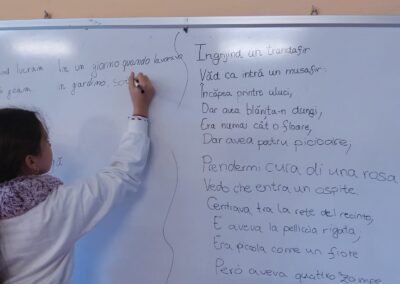 lucram
In un giorno quando lavoravo
in giardino,
Îngrijind un trandafir
Văd ca intră un musafir:
Încăpea printre uluci,
Dar avea blănița-n dungi,
Era numai cât o floare,
Dar avea patru picioare;
Prendermi cura di una rosa
Vedo che entra un ospite
Centrava tra la rete del recinto,
E aveva la pelliccia rigata,
Era piccola come un fiore
Però aveva quattro zampe